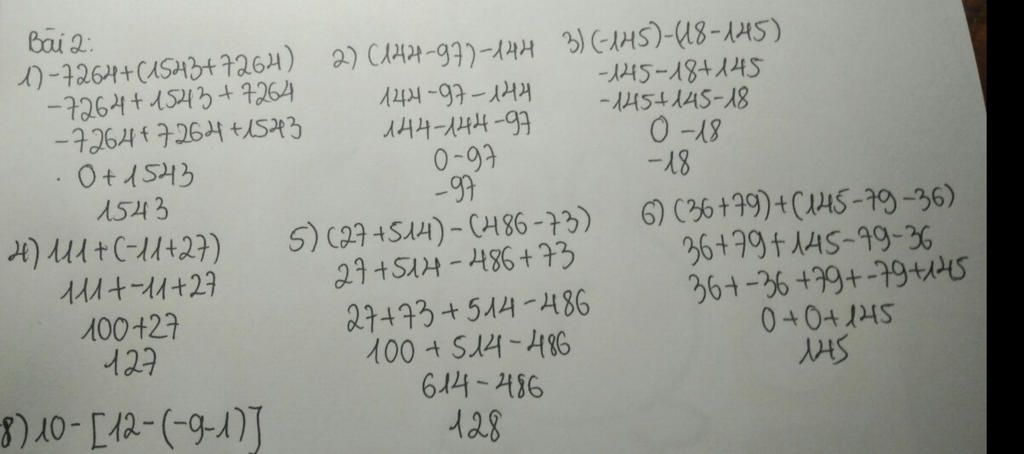 Bài 2:
1) -7264+(1543+7264)
-7264+1543+7264
-7264+7264+1543
0+1543
1543
2) (144-97)-144
144-97-144
144-144-97
0-97
-97
3) (-145)-(18-145)
-145-18+145
-145+145-18
0-18
-18
4) 111+(-11+27)
111+-11+27
100+27
127
5) (27+514)-(486-73)
27+514-486+73
27+73+514-486
100+514-486
614-486
128
6) (36+79)+(145-79-36)
36+79+145-79-36
36+-36+79+-79+145
0+0+145
145
8) 10-[12-(-9-1)]